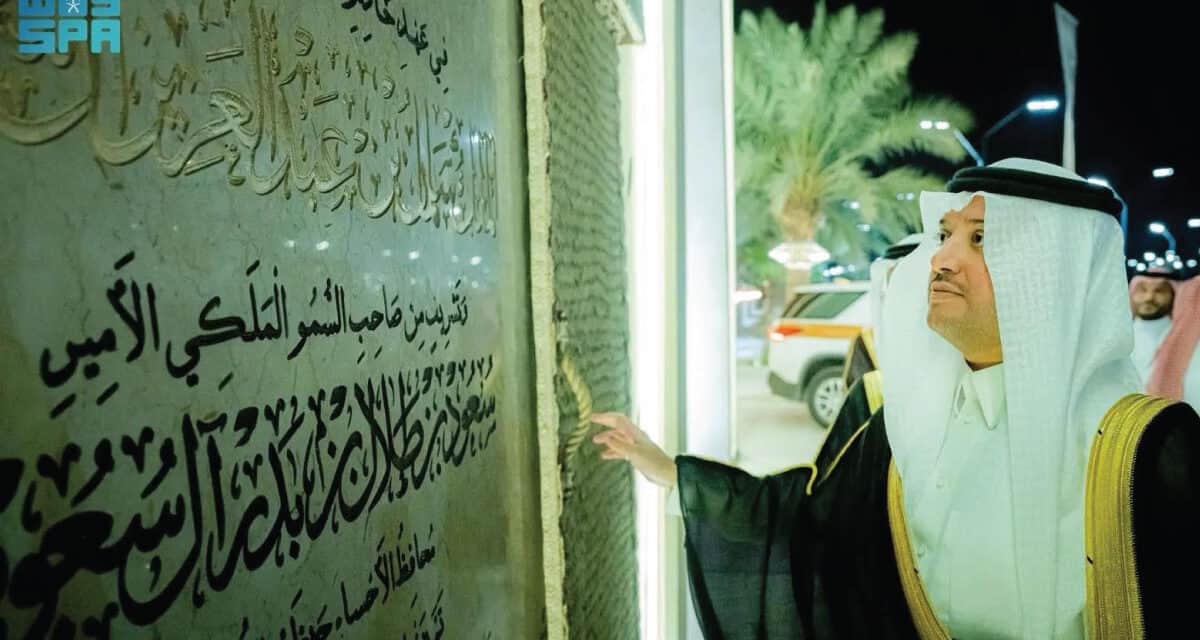 واس
SPA
في عهد
الملك سلمان بن عبد العزيز آل
بتشريف من صاحب السمو الملكي الأمير
سعود بن طلال بن بدر آل سعود
محافظ الأحساء